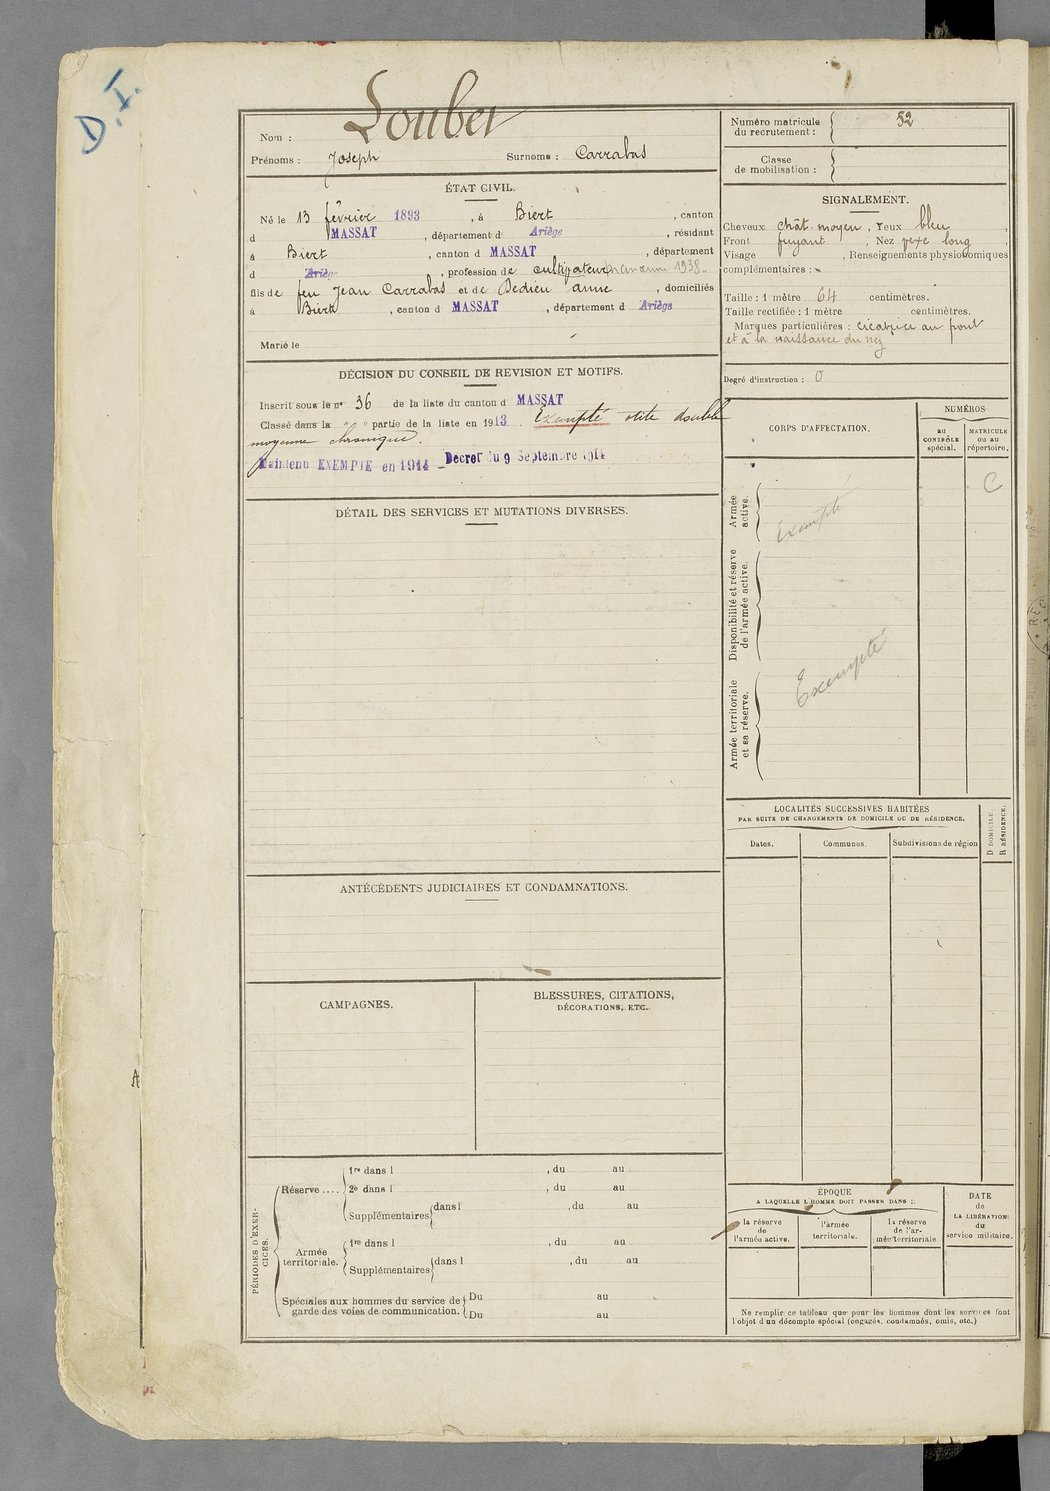 D.I.
Nom : Loubet
Prénoms : Joseph Surnoms : Carrabas
ÉTAT CIVIL.
Né le 13 février 1893 , à Biert , canton
d MASSAT , département d Ariège , résidant
à Biert , canton d MASSAT , département
d Ariège , profession de cultivateur 1938
fils de feu Jean Carrabas et de Dedieu anne , domiciliés
à Biert , canton d MASSAT , département d Ariège
Marié le
DÉCISION DU CONSEIL DE REVISION ET MOTIFS.
Inscrit sous le nº 36 de la liste du canton d MASSAT
Classé dans la " partie de la liste en 1913 Exempté otite double
moyenne chronique.
Maintenu EXEMPTÉ en 1914 _ Decret du 9 Septembre 1914
DÉTAIL DES SERVICES ET MUTATIONS DIVERSES.
ANTÉCÉDENTS JUDICIAIRES ET CONDAMNATIONS.
CAMPAGNES.
BLESSURES, CITATIONS,
DÉCORATIONS, ETC.
PÉRIODES D'EXER-
CICES.
Réserve .... 1re dans l , du au
2e dans l , du au
Supplémentaires dans l , du au
Armée
territoriale. 1re dans l , du au
Supplémentaires dans l , du au
Spéciales aux hommes du service de
garde des voies de communication.
Du au
Du au
Numéro matricule
du recrutement : 52
Classe
de mobilisation :
SIGNALEMENT.
Cheveux chât. moyen , Yeux bleu ,
Front fuyant , Nez vexe long ,
Visage , Renseignements physionomiques
complémentaires :
Taille : 1 mètre 64 centimètres.
Taille rectifiée : 1 mètre centimètres.
Marques particulières : cicatrice au front
et à la naissance du nez
Degré d'instruction : 0
CORPS D'AFFECTATION.
NUMÉROS
au
CONTRÔLE
spécial.
MATRICULE
ou au
répertoire.
C
Armée
active.
Exempté
Disponibilité et réserve
de l'armée active.
Armée territoriale
et sa réserve.
Exempté
LOCALITÉS SUCCESSIVES HABITÉES
PAR SUITE DE CHANGEMENTS DE DOMICILE OU DE RÉSIDENCE.
Dates. Communes. Subdivisions de région
D DOMICILE.
R RÉSIDENCE.
ÉPOQUE
A LAQUELLE L'HOMME DOIT PASSER DANS :
la réserve
de
l'armée active.
l'armée
territoriale.
la réserve
de l'ar-
mée territoriale
DATE
de
LA LIBÉRATION
du
service militaire.
Ne remplir ce tableau que pour les hommes dont les services font
l'objet d'un décompte spécial (engagés, condamnés, omis, etc.)